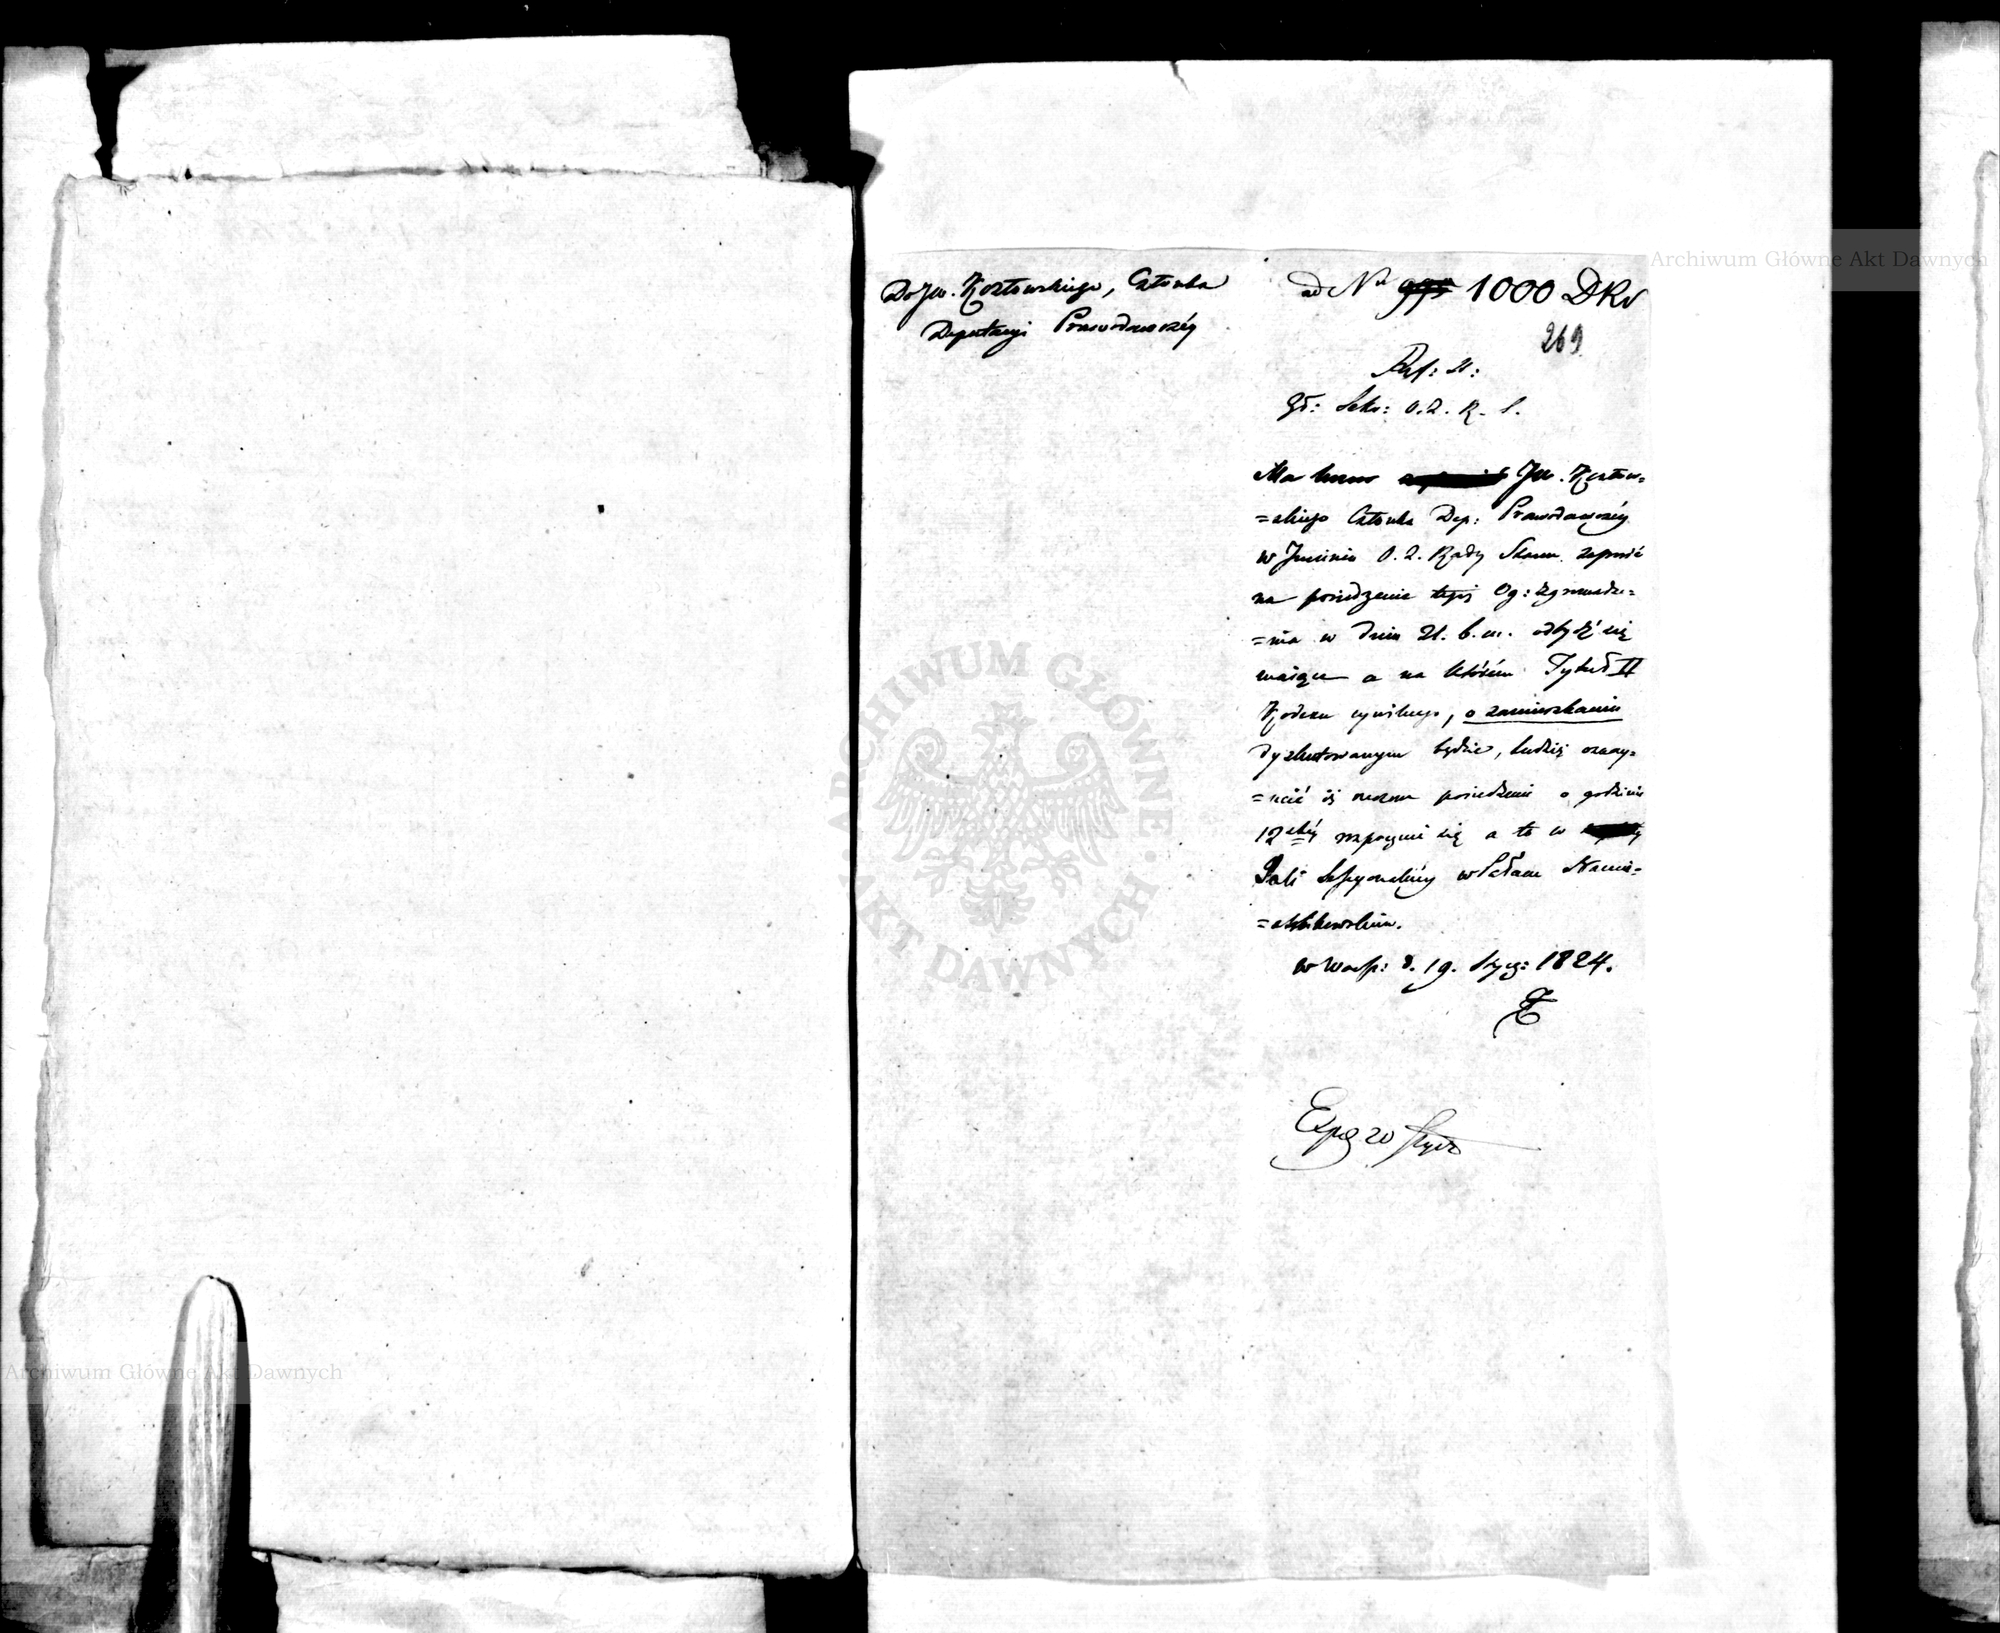 Do JW. Kozłowskiego, Członka
Deputacyi Prawodawczéy
ad Nr 1000 DKr
269
Ref: St:
Gł: Sekr: O. Z. R. S.
Ma honor JW. Kozłow=
=skiego Członka Dep: Prawodawczéy
w Jmieniu O. Z. Rady Stanu zaprosić
na posiedzenie tegoż Og: Zgromadze=
=nia w dniu 21. b. m. odbydź się
maiące a na którém Tytuł II
Kodexu cywilnego, o zamieszkaniu
dyskutowanym będzie, tudzież oznay=
=mić iż rzeczone posiedzenie o godzinie
12stéy rozpocznie się a to w
Sali Sessyonalnéy w Pałacu Namie=
=stnikowskim.
w Warsz: d. 19. Stycz: 1824.
Exped 20 Stycz
Archiwum Główne Akt Dawnych
ARCHIWUM GŁÓWNE AKT DAWNYCH
Archiwum Główne Akt Dawnych